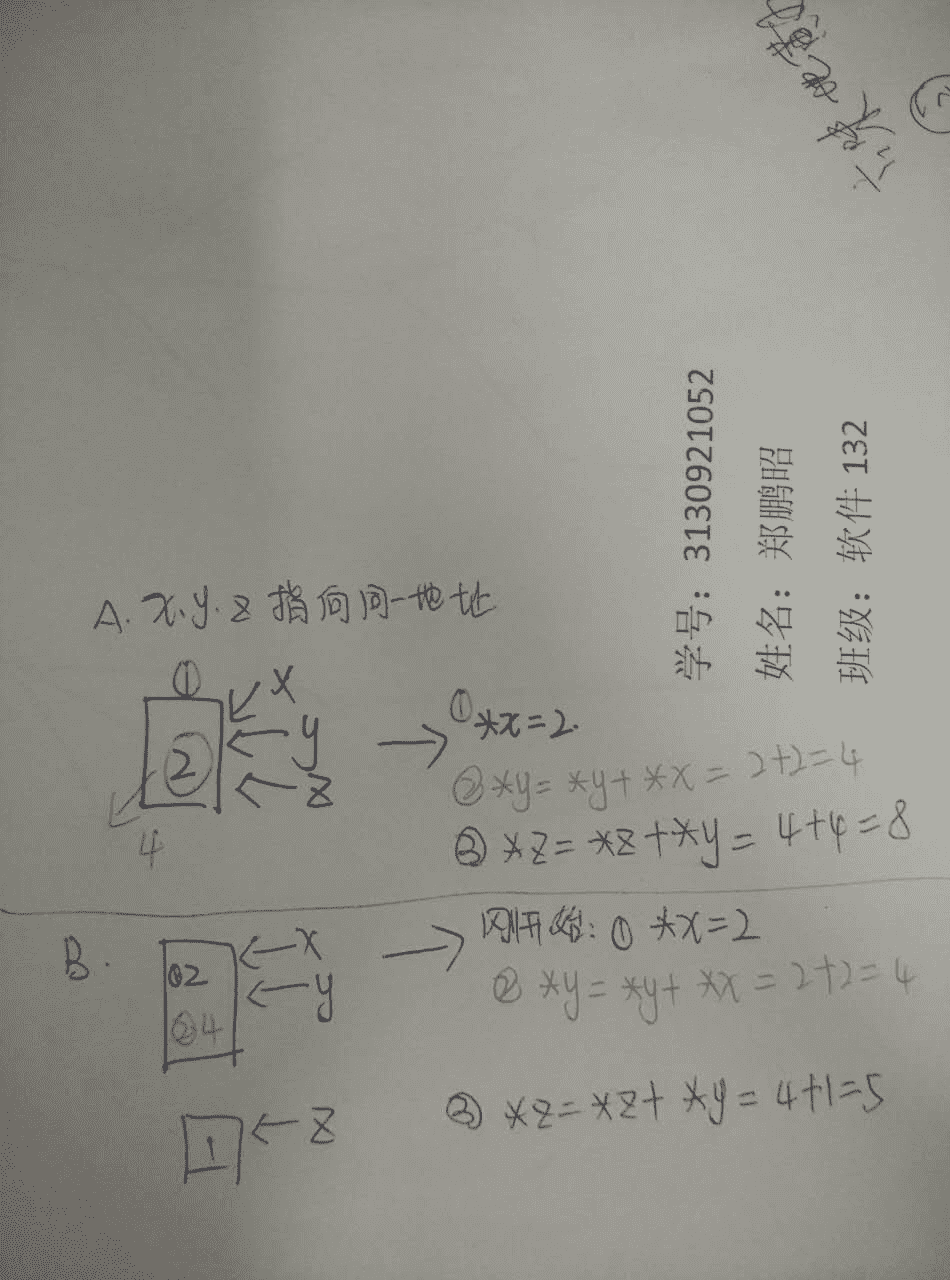 学号：3130921052
姓名：郑鹏昭
班级：软件 132
A. x.y.z 指向同一地址
①
x
y
z
2
4
①*x=2.
②*y=*y+*x=2+2=4
③*z=*z+*y=4+4=8
B.
①2
②4
x
y
刚开始：①*x=2
②*y=*y+*x=2+2=4
1
z
③*z=*z+*y=4+1=5